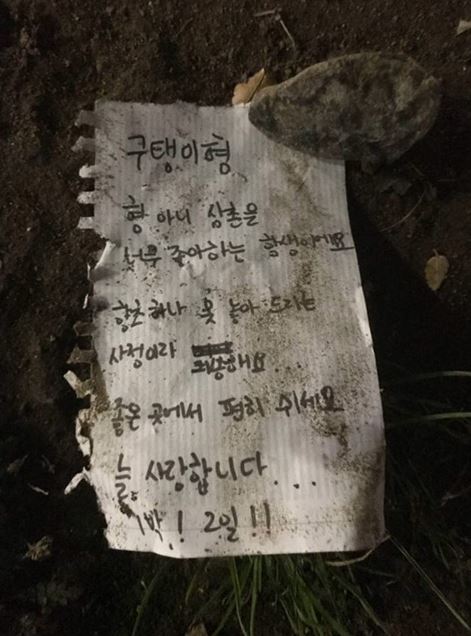 구탱이형
형 아니 삼촌을
너무 좋아하는 학생이에요
향초 하나 못 놓아 드리는
사정이라 죄송해요...
좋은 곳에서 편히 쉬세요
늘 사랑합니다...
1박! 2일!!